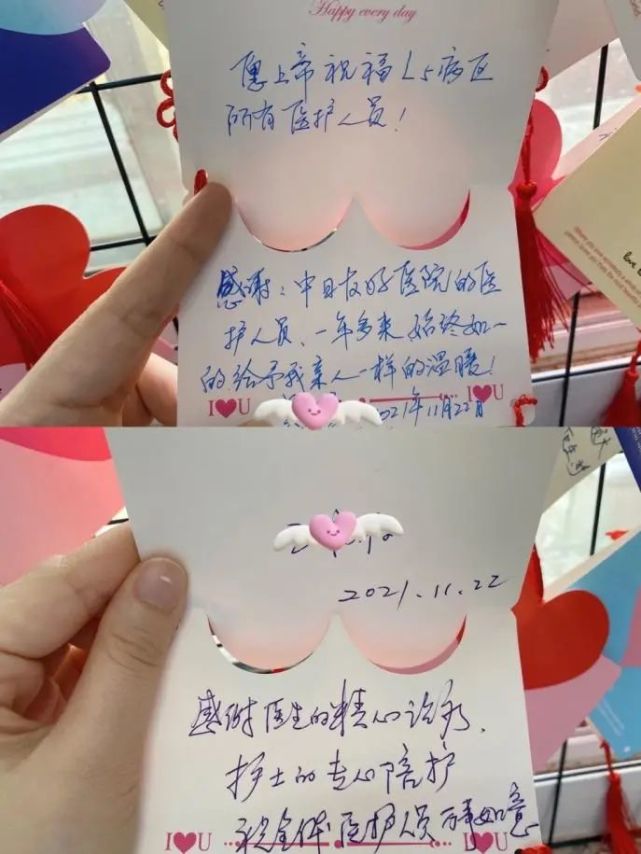 Happy every day
愿上帝祝福L5病区
所有医护人员！
感谢：中日友好医院的医
护人员、一年多来始终如一
的给予我亲人一样的温暖！
I❤U
I❤U
2021年11月22日
2021.11.22
感谢医生的精心诊疗、
护士的专心陪护
祝全体医护人员万事如意
I❤U
I❤U